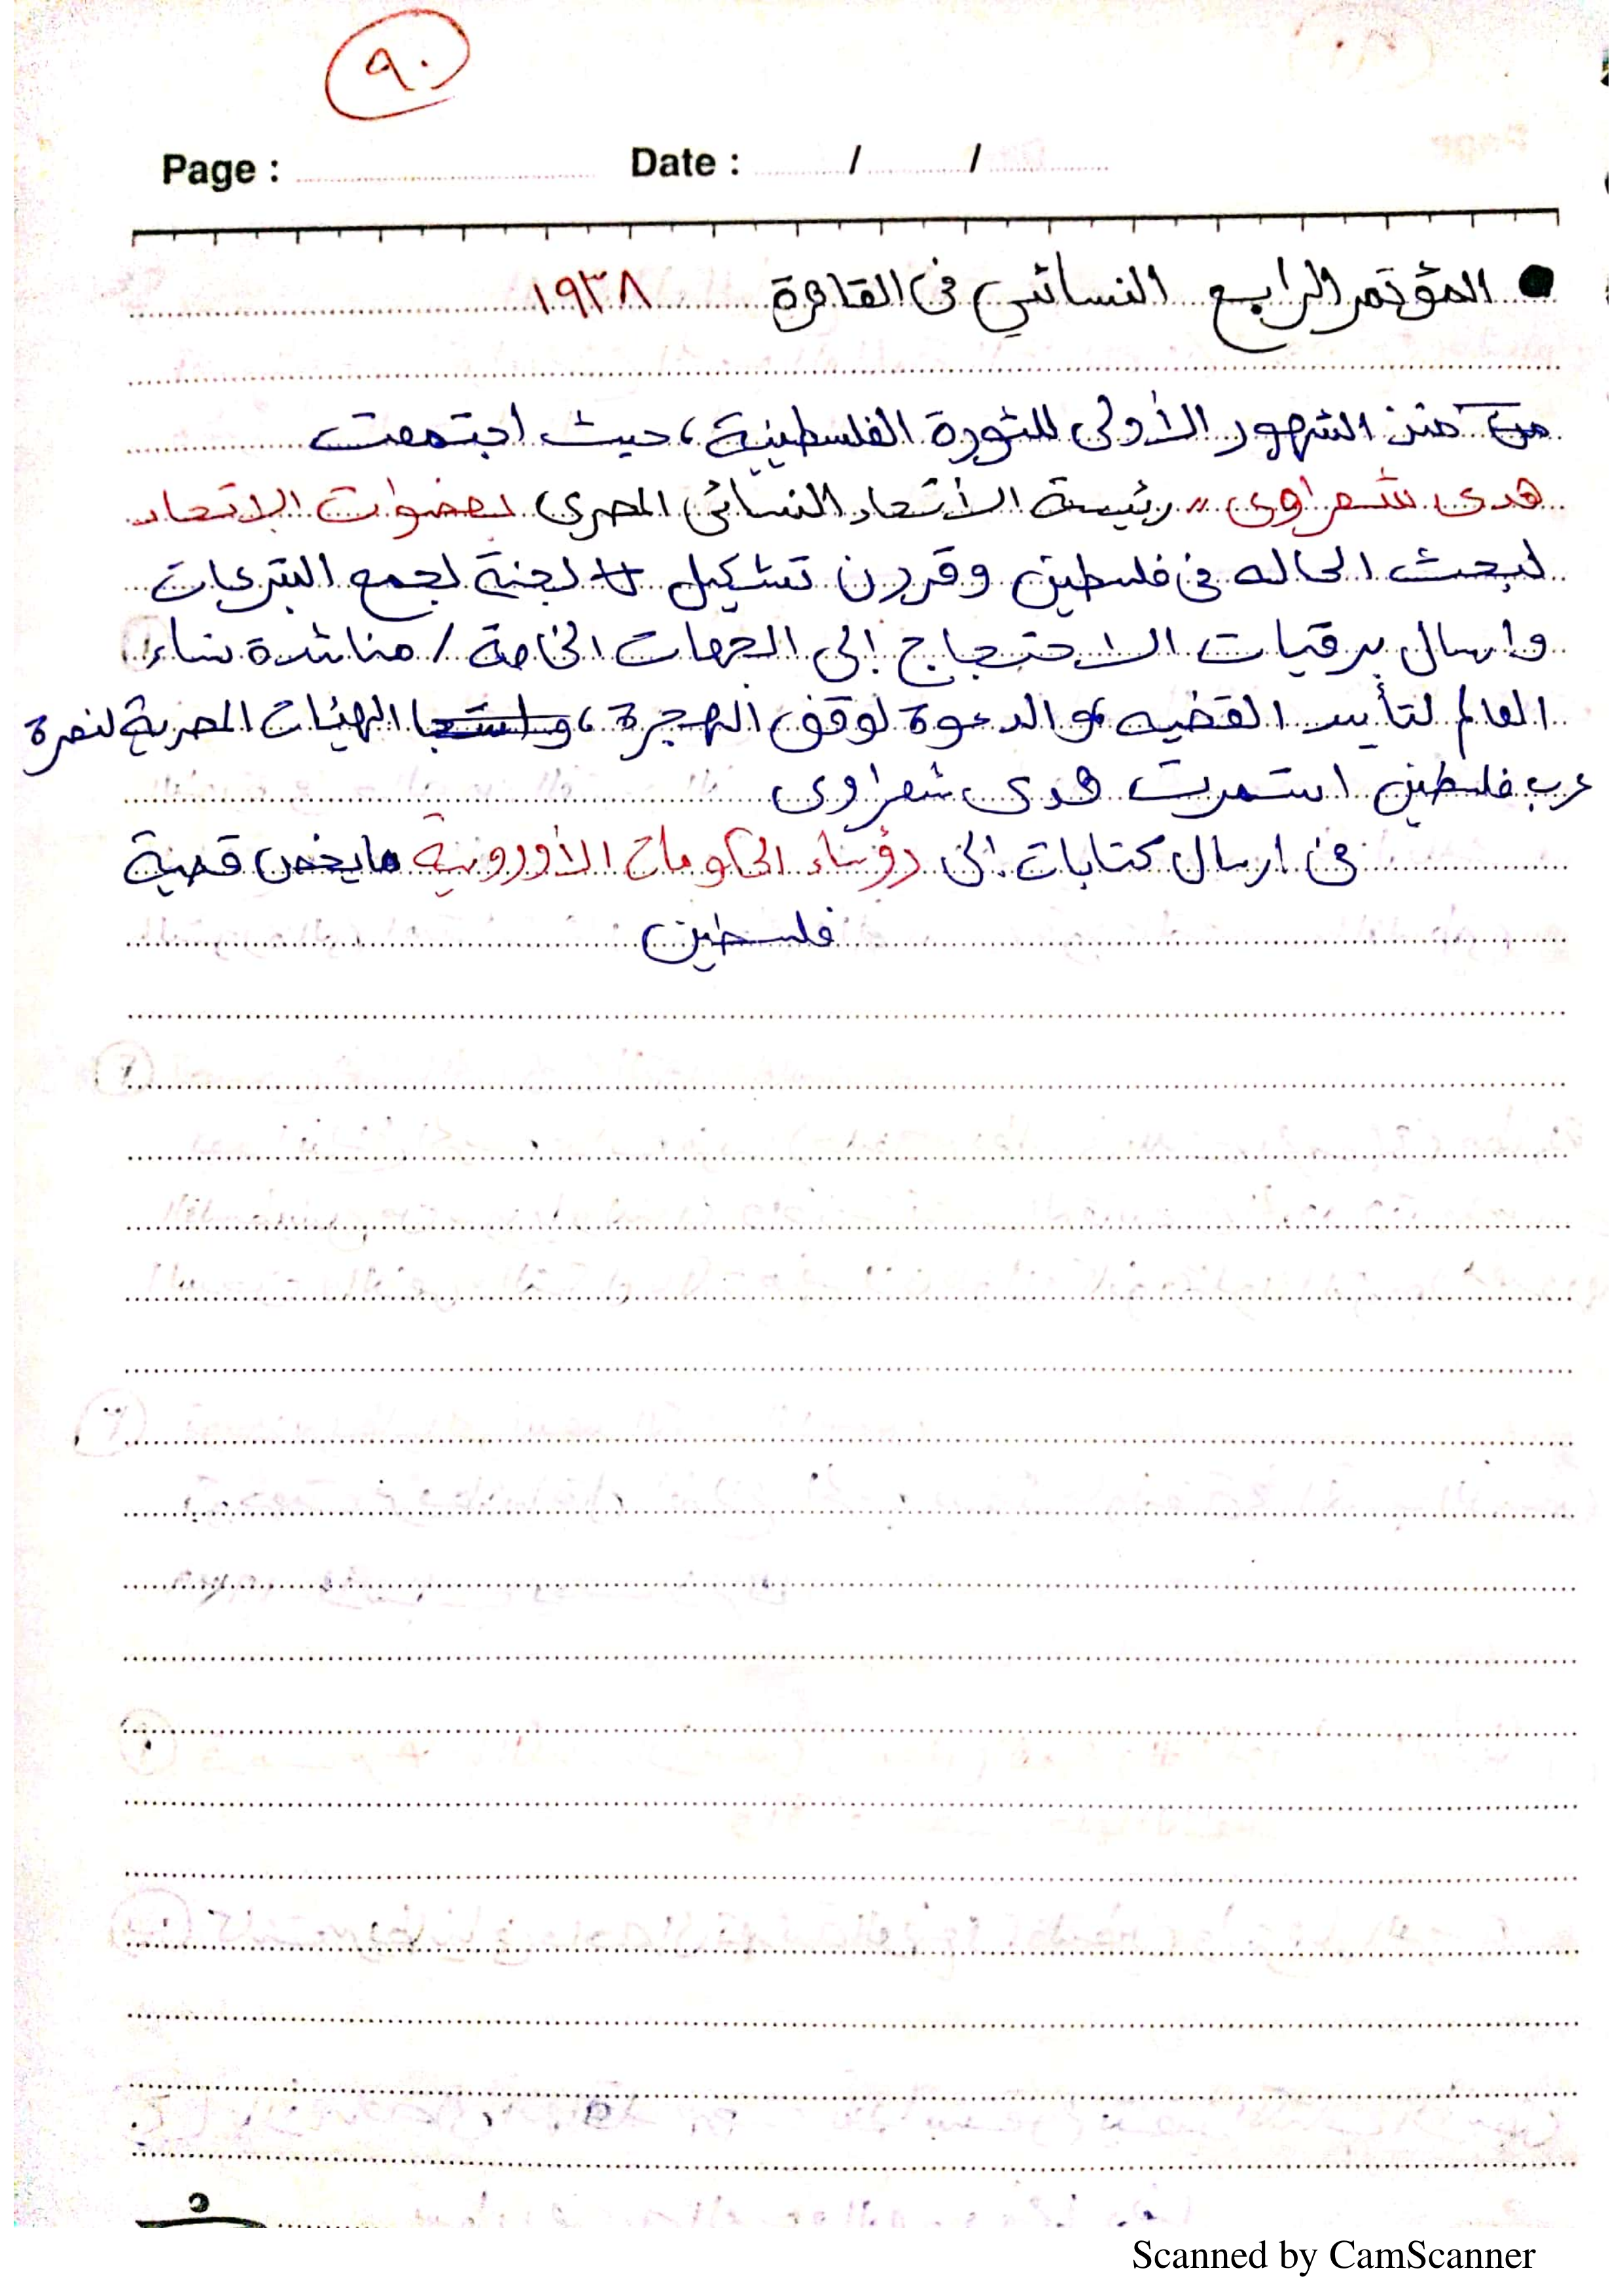 ٩٠
Page : Date : / /
● المؤتمر الرابع النسائي فى القاهرة ١٩٣٨
من منذ الشهور الأولى للثورة الفلسطينية، حيث اجتمعت
هدى شعراوى " رئيسة الأتحاد النسائى المصرى بعضوات الاتحاد
لبحث الحاله فى فلسطين وقررن تشكيل لجنة لجمع التبرعات
وارسال برقيات الاحتجاج إلى الجهات الخاصة / مناشدة نساء
العالم لتأييد القضيه و الدعوة لوقف الهجرة، الهيئات المصرية لنصرة
عرب فلسطين استمرت هدى شعراوى
فى ارسال كتابات إلى رؤساء الحكومات الأوروبية مايخص قضية
فلسطين
Scanned by CamScanner